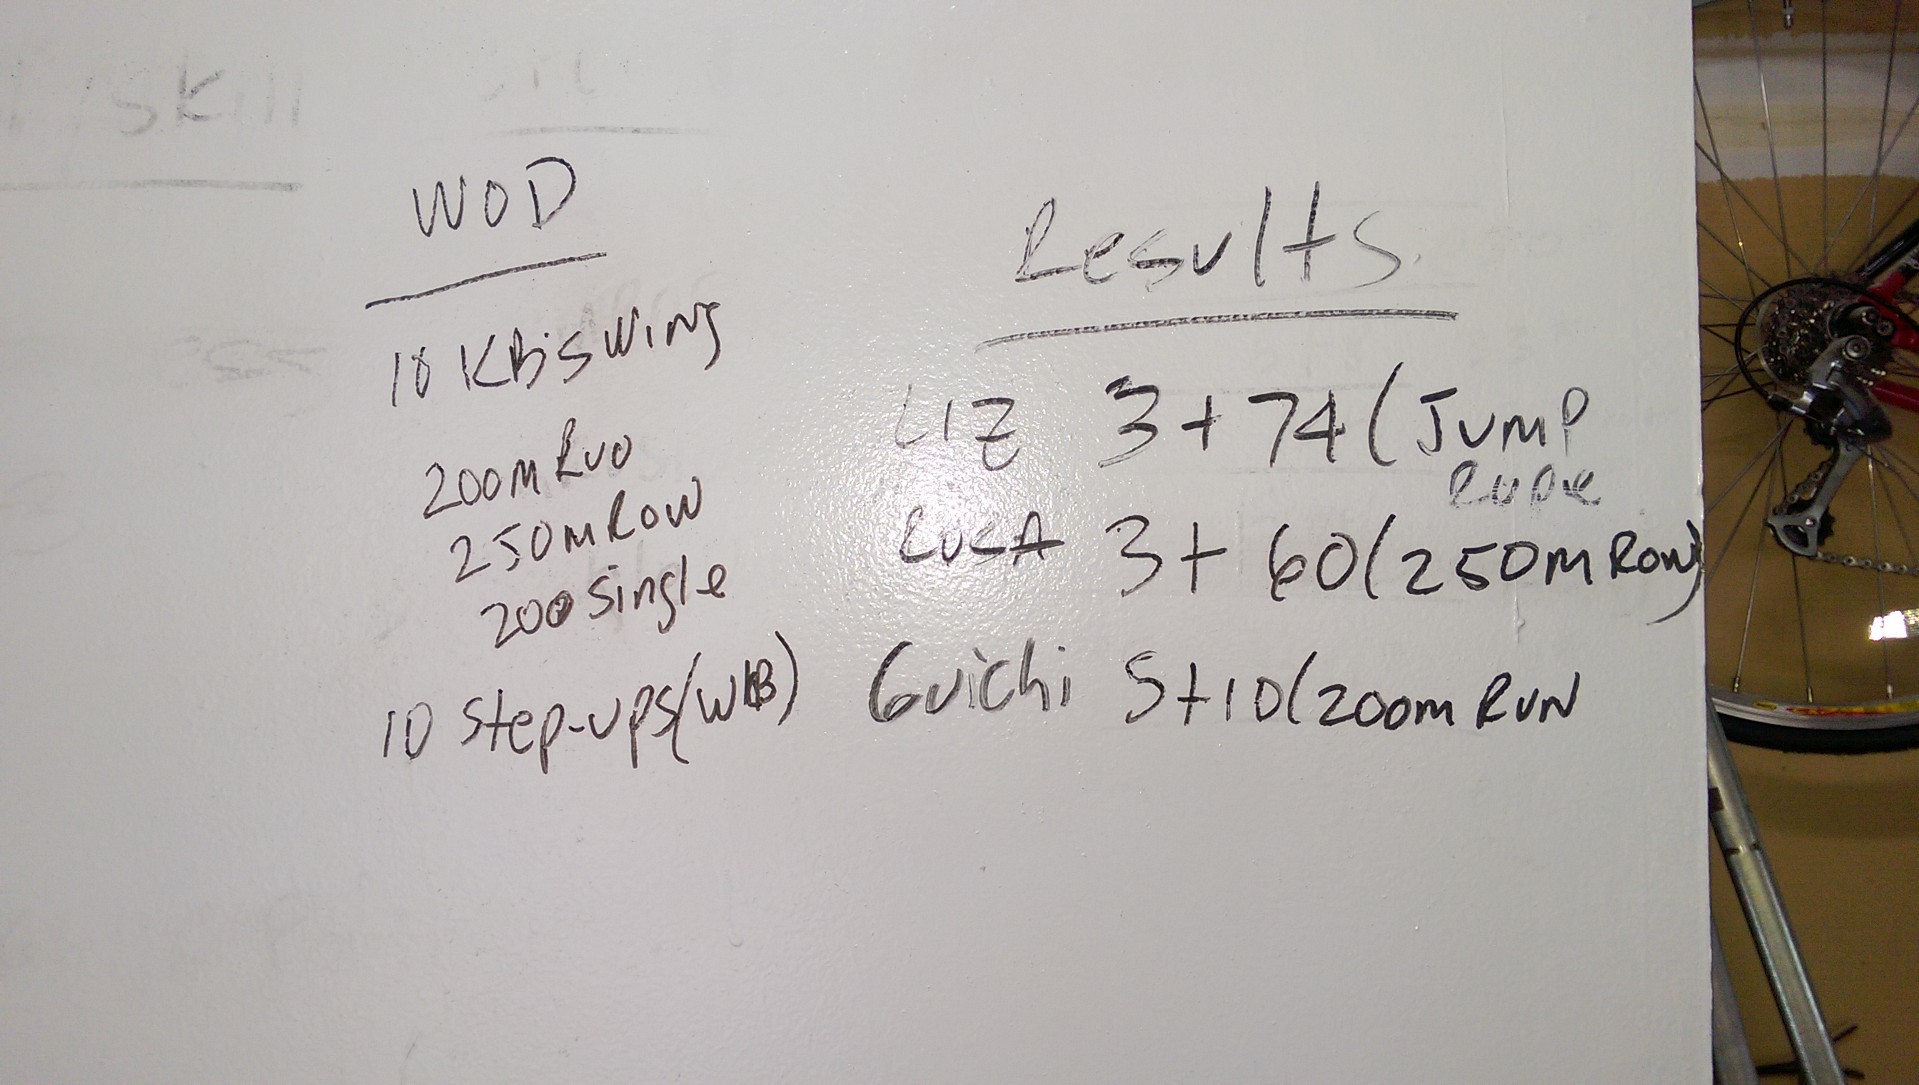 Skill
WOD
10 KB swing
200m Run
250m Row
200 single
10 step-ups (WB)
Results
LIZ 3 + 74 (Jump
Rope
LUCA 3 + 60 (250m Row)
Guichi 5 + 10 (200m RUN